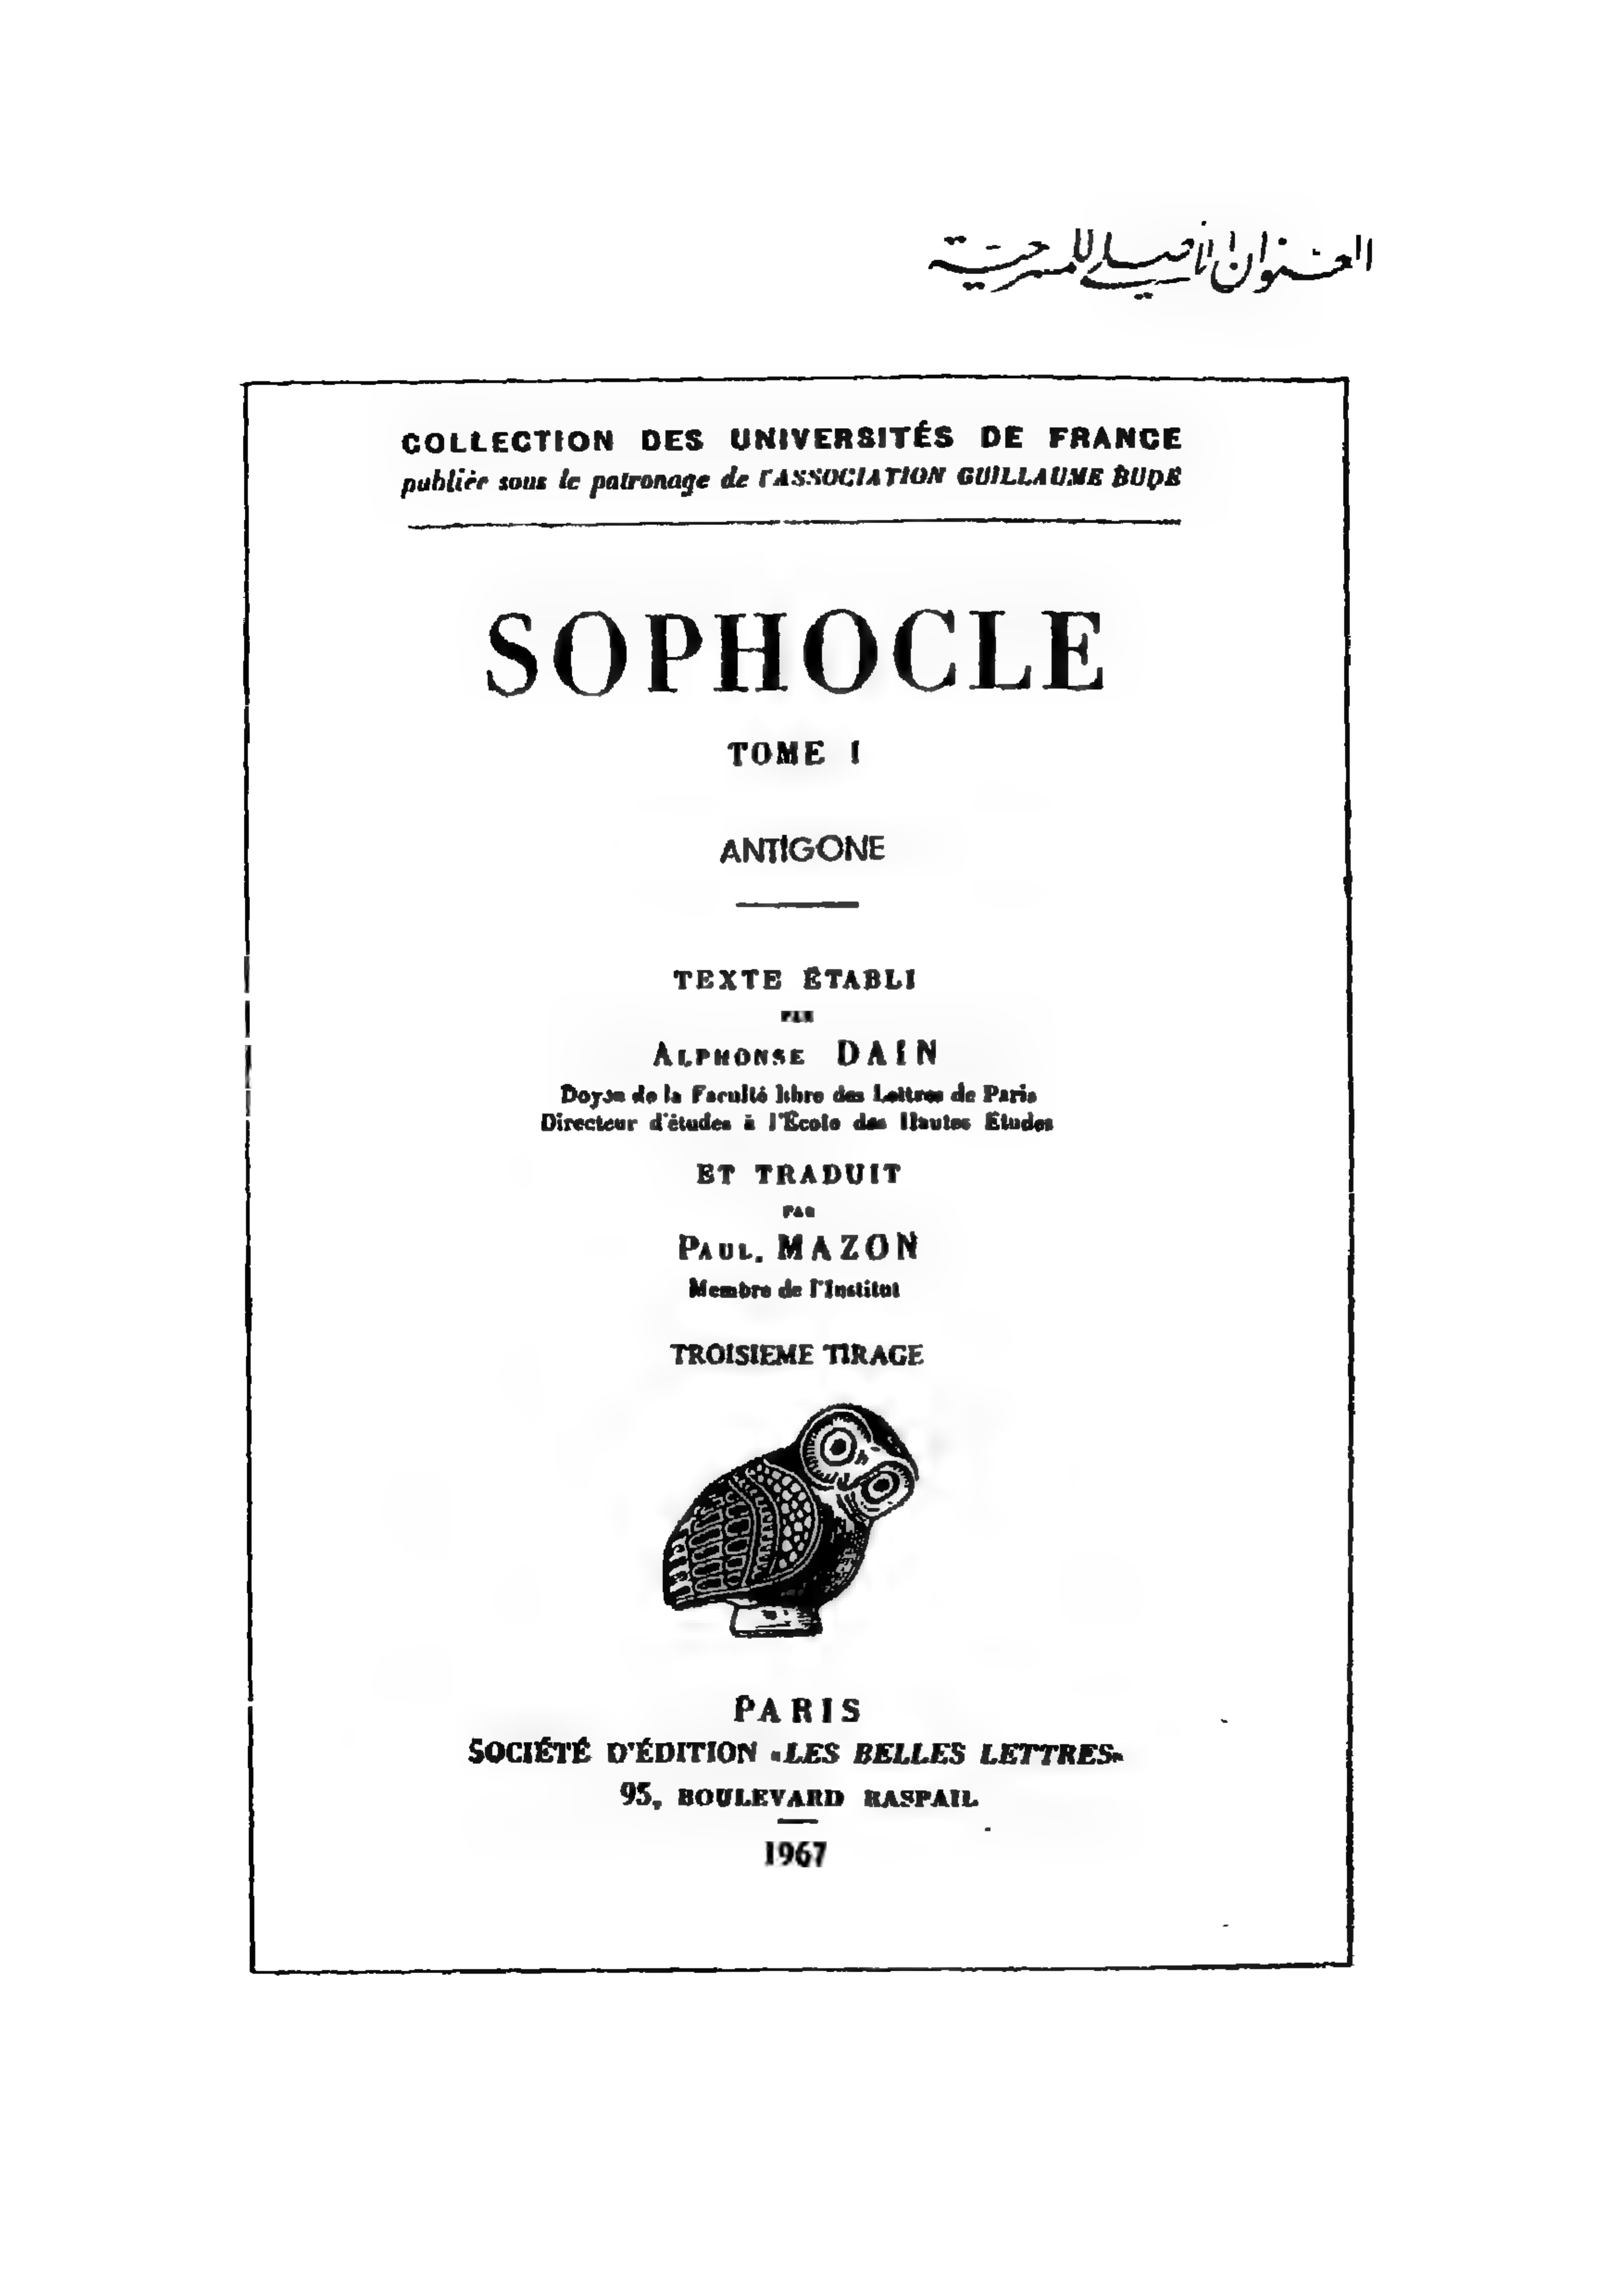 العنوان الأصلي للمسرحية
COLLECTION DES UNIVERSITÉS DE FRANCE
publiée sous le patronage de l'ASSOCIATION GUILLAUME BUDÉ
SOPHOCLE
TOME I
ANTIGONE
TEXTE ÉTABLI
PAR
ALPHONSE DAIN
Doyen de la Faculté libre des Lettres de Paris
Directeur d'études à l'École des Hautes Études
ET TRADUIT
PAR
PAUL MAZON
Membre de l'Institut
TROISIEME TIRAGE
PARIS
SOCIÉTÉ D'ÉDITION «LES BELLES LETTRES»
95, BOULEVARD RASPAIL
1967